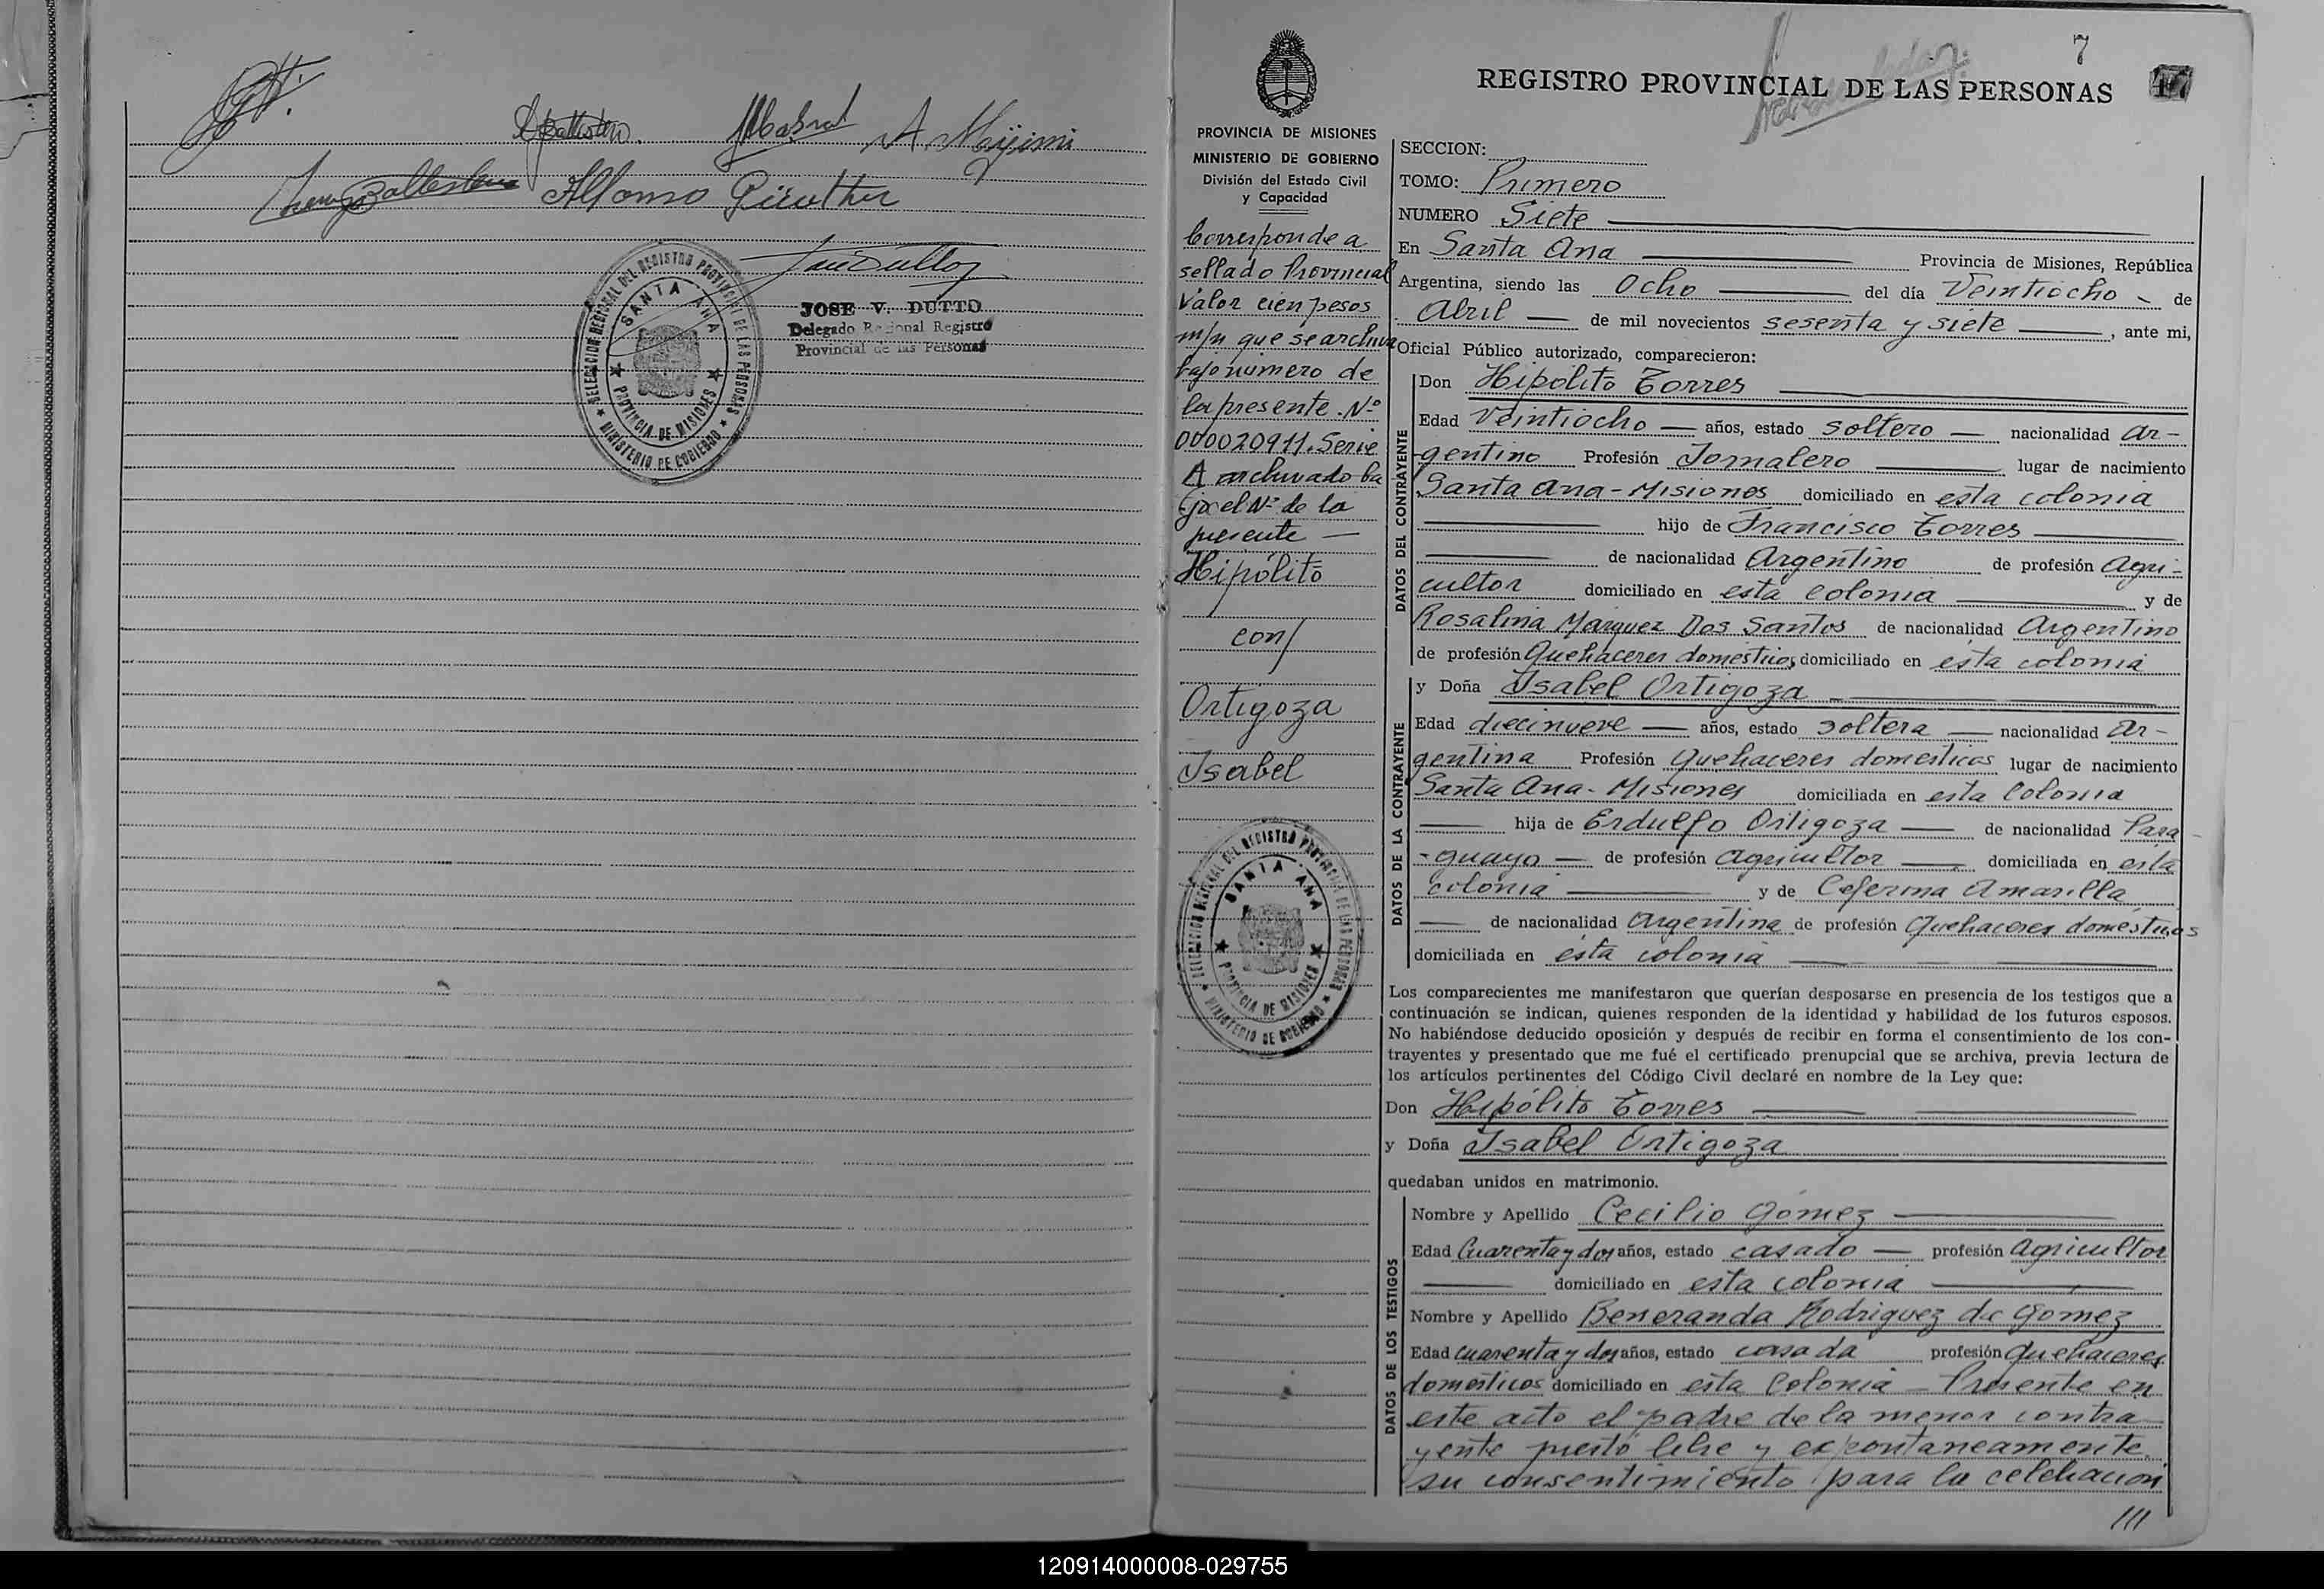 A. Moyjimi
Alfonso Güuther
JOSE V. DUTTO
Delegado Regional Registro
Provincial de las Personas
DELEGACION REGIONAL DEL REGISTRO PROVINCIAL DE LAS PERSONAS
SANTA ANA
PROVINCIA DE MISIONES
MINISTERIO DE GOBIERNO
7
REGISTRO PROVINCIAL DE LAS PERSONAS 17
PROVINCIA DE MISIONES
MINISTERIO DE GOBIERNO
División del Estado Civil
y Capacidad
Corresponde a
sellado Provincial
valor cien pesos
m/n que se archiva
bajo número de
la presente. Nº
000020911. Serie
A archivado ba
jo el Nº de la
presente —
Hipólito
con/
Ortigoza
Isabel
DELEGACION REGIONAL DEL REGISTRO PROVINCIAL DE LAS PERSONAS
SANTA ANA
PROVINCIA DE MISIONES
MINISTERIO DE GOBIERNO
SECCION:
TOMO: Primero
NUMERO Siete
En Santa Ana Provincia de Misiones, República
Argentina, siendo las Ocho del día Veintiocho de
Abril de mil novecientos sesenta y siete, ante mi,
Oficial Público autorizado, comparecieron:
DATOS DEL CONTRAYENTE
Don Hipolito Torres
Edad Veintiocho años, estado soltero nacionalidad ar-
gentino Profesión Jornalero lugar de nacimiento
Santa Ana - Misiones domiciliado en esta colonia
hijo de Francisco Torres
de nacionalidad Argentino de profesión Agri-
cultor domiciliado en esta colonia y de
Rosalina Marquez Dos Santos de nacionalidad Argentino
de profesión Quehaceres domesticos domiciliado en esta colonia
DATOS DE LA CONTRAYENTE
y Doña Isabel Ortigoza
Edad diecinueve años, estado soltera nacionalidad ar-
gentina Profesión Quehaceres domesticos lugar de nacimiento
Santa Ana - Misiones domiciliada en esta Colonia
hija de Erdulfo Ortigoza de nacionalidad Para
-guayo de profesión agricultor domiciliada en esta
colonia y de Ceferina Amarilla
de nacionalidad Argentina de profesión Quehaceres domésticos
domiciliada en esta colonia
Los comparecientes me manifestaron que querían desposarse en presencia de los testigos que a
continuación se indican, quienes responden de la identidad y habilidad de los futuros esposos.
No habiéndose deducido oposición y después de recibir en forma el consentimiento de los con-
trayentes y presentado que me fué el certificado prenupcial que se archiva, previa lectura de
los artículos pertinentes del Código Civil declaré en nombre de la Ley que:
Don Hipólito Torres
y Doña Isabel Ortigoza
quedaban unidos en matrimonio.
DATOS DE LOS TESTIGOS
Nombre y Apellido Cecilio Gomez
Edad Cuarenta y dos años, estado casado profesión agricultor
domiciliado en esta colonia
Nombre y Apellido Beneranda Rodriguez de Gomez
Edad cuarenta y dos años, estado casada profesión quehaceres
domesticos domiciliado en esta Colonia - Presente en
este acto el padre de la menor contra
yente presto libre y expontaneamente
su consentimiento para la celebracion
///
120914000008-029755